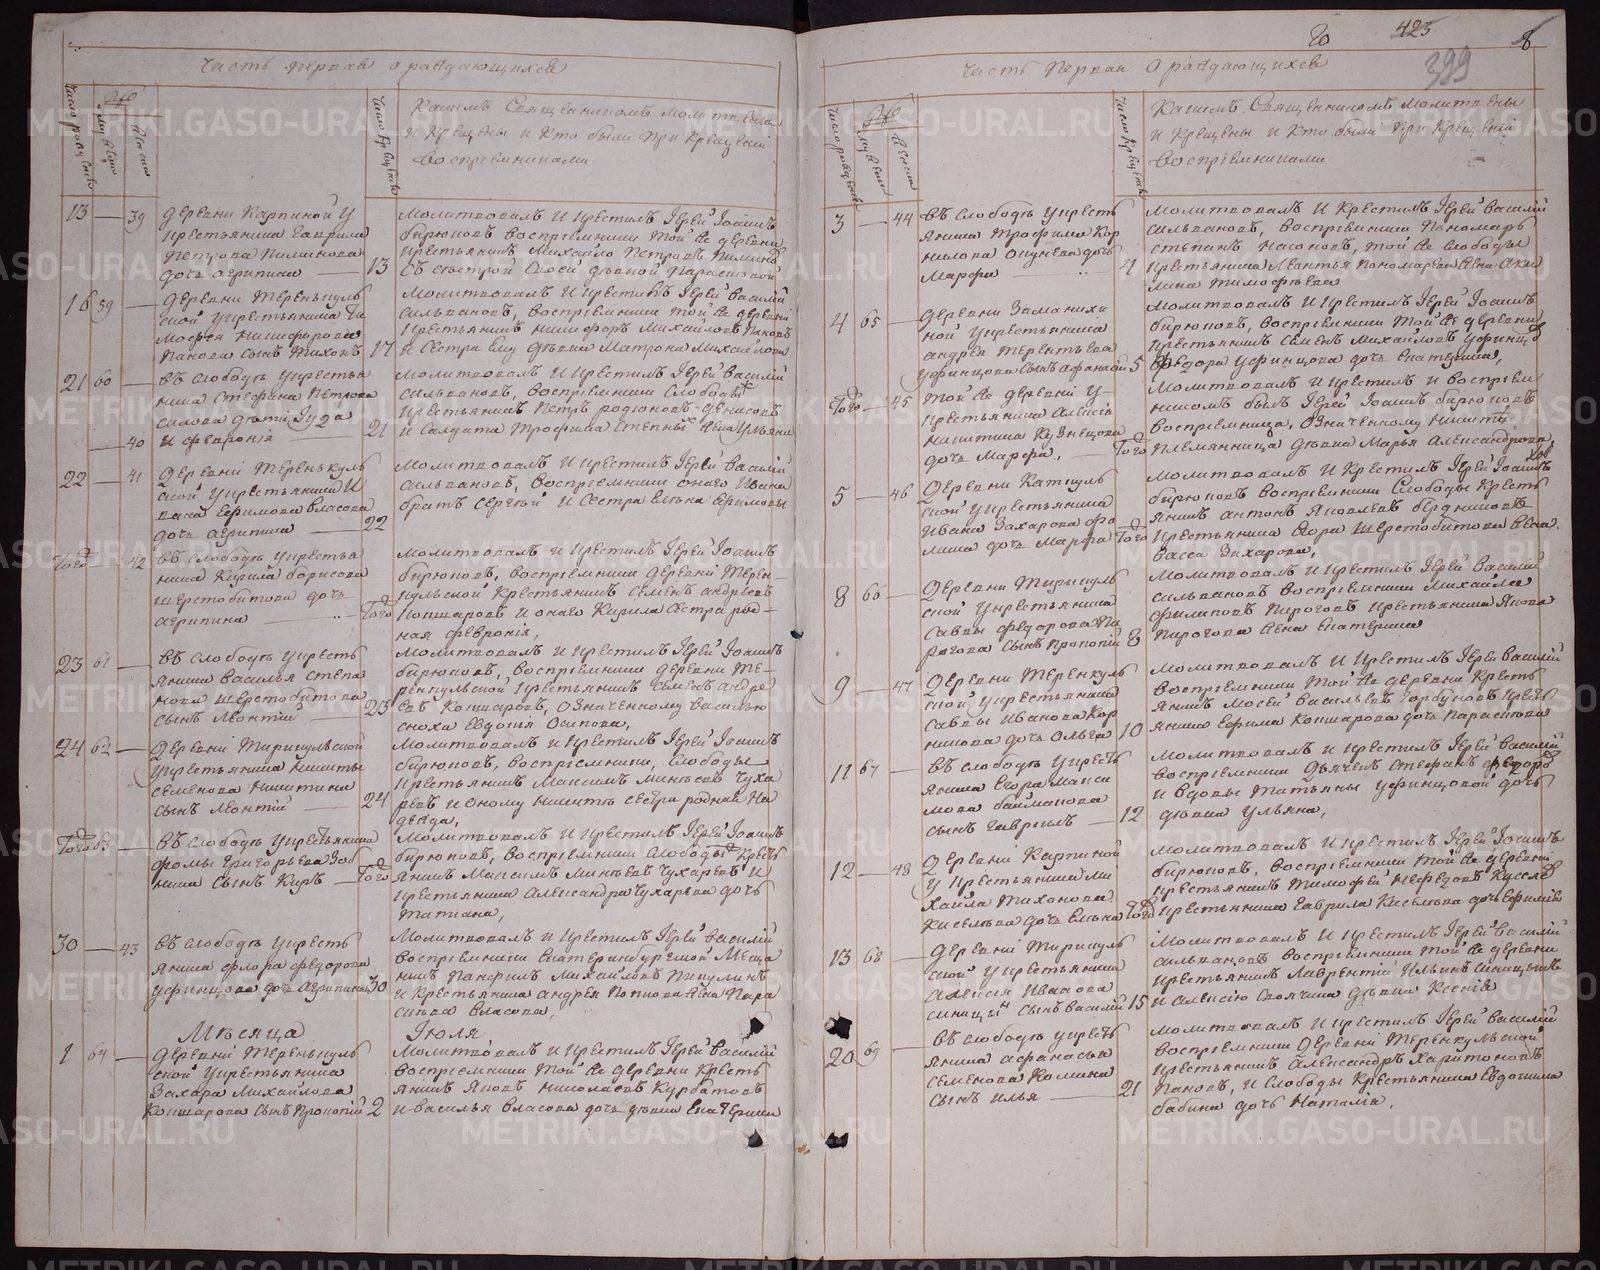 Часть первая о рождающихся
Число рождения
Число крещения
Какимъ Священникомъ молитвены
и крещены и кто были при крещении
восприемниками
13 — 39 деревни Карпиной у
крестьянина Гаврила
Петрова
дочь Агрипина — 13
молитвовалъ и крестилъ Іерей Іоаннъ
Бирюковъ восприемники той же деревни
крестьянинъ Михайло Петровъ
съ сестрой своей девкой Параскевой
16 59 — деревни Теренкуль
ской у крестьянина Ти
мофея Никифорова
Панова сынъ Тихонъ 17
молитвовалъ и крестилъ Іерей Василій
Сильвановъ, восприемники той же деревни
крестьянинъ Никифоръ Михайловъ Пановъ
и сестра ему девка Матрона Михайлова
21 60 — въ слободе у крестья
нина Стефана Петрова
дети Іуда
— 40 и Феврония — 21
молитвовалъ и крестилъ Іерей Василій
Сильвановъ, восприемники слободы
крестьянинъ Петръ Родионовъ Денисовъ
и солдата Трофима жена Ульяна
22 — 41 деревни Теренкуль
ской у крестьянина И
вана Ефимова Власова
дочь Агрипина — 22
молитвовалъ и крестилъ Іерей Василій
Сильвановъ, восприемники онаго Ивана
братъ Сергей и сестра Елена Ефимовы
Того 42 въ слободе у крестья
нина Кирила Борисова
Шерстобитова дочь
Агрипина — Того
молитвовалъ и крестилъ Іерей Іоаннъ
Бирюковъ, восприемники деревни Терен
кульской крестьянинъ Семенъ Андреевъ
Кошкаровъ и онаго Кирила сестра род-
ная Феврония,
23 61 — въ слободе у кресть
янина Василья Степа
нова Шерстобитова
сынъ Леонтий — 23
молитвовалъ и крестилъ Іерей Іоаннъ
Бирюковъ, восприемники деревни Те-
ренкульской крестьянинъ Семенъ Андре
евъ Кошкаровъ, означенному Василью
сноха Евдокия Осипова,
24 62 — деревни Тирикульской
у крестьянина Никиты
Семенова Никитина
сынъ Леонтий — 24
молитвовалъ и крестилъ Іерей Іоаннъ
Бирюковъ, восприемники, слободы
крестьянинъ Максимъ Минеевъ Чуха
ревъ и оному Никите сестра родная На
дежда,
Того 63 — въ слободе у крестьянина
Фомы Григорьева Зоб
нина сынъ Киръ — Того
молитвовалъ и крестилъ Іерей Іоаннъ
Бирюковъ, восприемники слободы кресть
янинъ Максимъ Минеевъ Чухаревъ и
крестьянина Александра Чухарева дочь
Татиана,
30 — 43 въ слободе у кресть
янина Флора Федорова
Уфинцова дочь Агрипина 30
молитвовалъ и крестилъ Іерей Василій
восприемники Екатеринбургской меща
нинъ Панфилъ Михайловъ Пикулинъ
и крестьянина Андрея Попкова жена Пара
скева Власова,
Месяца Іюля
1 64 — деревни Теренкуль
ской у крестьянина
Захара Михайлова
Кошкарова сынъ Прокопій 2
молитвовалъ и крестилъ Іерей Василій
восприемники той же деревни кресть
янинъ Яковъ Николаевъ Курбатовъ
и Василья Власова дочь девка Екатерина
423
399
8
Часть первая о рождающихся
Число рождения
Число крещения
Какимъ Священникомъ молитвены
и крещены и кто были при крещении
восприемниками
3 — 44 въ слободе у кресть
янина Трофима Кор
нилова Окунева дочь
Марфа — 4
молитвовалъ и крестилъ Іерей Василій
Сильвановъ, восприемники пономарь
Степанъ Насоновъ, той же слободы
крестьянина Леонтья Пономарева жена Аку
лина Тимофеева
4 65 — деревни Заманихи
ной у крестьянина
Андрея Терентьева
Уфинцова сынъ Афанасій 5
молитвовалъ и крестилъ Іерей Іоаннъ
Бирюковъ, восприемники той же деревни
крестьянинъ Семенъ Михайловъ Уфинцовъ
Федора Уфинцова дочь Екатерина,
Того — 45 той же деревни у
крестьянина Алексея
Никитина Кузнецова
дочь Марфа, — Того
молитвовалъ и крестилъ и восприем
никомъ былъ Іерей Іоаннъ Бирюковъ
восприемница, означенному Никите
племянница девка Марья Александрова
5 — 46 деревни Каткуль
ской у крестьянина
Ивана Захарова Фо
мина дочь Марфа Того
молитвовалъ и крестилъ Іерей Іоаннъ
Бирюковъ восприемники слободы кресть
янинъ Антонъ Яковлевъ Бердниковъ
крестьянина Егора Шерстобитова жена
Васса Захарова,
8 66 — деревни Тирикуль
ской у крестьянина
Савы Федорова Пи
рогова сынъ Прокопій 8
молитвовалъ и крестилъ Іерей Василій
Сильвановъ восприемники Михайла
Филиповъ Пироговъ крестьянина Якова
Пирогова жена Екатерина
9 — 47 деревни Теренкуль
ской у крестьянина
Савы Иванова Кор
никова дочь Ольга 10
молитвовалъ и крестилъ Іерей Василій
восприемники той же деревни кресть
янинъ Мосей Васильевъ Горбуновъ кресть
янина Ефима Кошкарова дочь Параскева
11 67 — въ слободе у кресть
янина Егора Макси
мова Байманова
сынъ Гаврилъ — 12
молитвовалъ и крестилъ Іерей Василій
восприемники дьячекъ Стефанъ Федоровъ
и вдовы Татьяны Уфинцовой дочь
девка Ульяна,
12 — 48 деревни Карпиной
у крестьянина Ми
хайла Тихонова
Киселева дочь Елена Того
молитвовалъ и крестилъ Іерей Іоаннъ
Бирюковъ, восприемники той же деревни
крестьянинъ Тимофей Нефедовъ Киселевъ
крестьянина Гаврила Киселева дочь Ефимія
13 68 — деревни Тирикуль
ской у крестьянина
Алексея Иванова
Синицына сынъ Василій 15
молитвовалъ и крестилъ Іерей Василій
Сильвановъ восприемники той же деревни
крестьянинъ Лаврентій Ильинъ Синицынъ
и Алексею своячина девка Ксения
20 69 — въ слободе у кресть
янина Афанасья
Семенова Комина
сынъ Илья — 21
молитвовалъ и крестилъ Іерей Василій
восприемники деревни Теренкульской
крестьянинъ Александръ Харитоновъ
Пановъ, и слободы крестьянина Евдокима
Бабина дочь Наталія,
METRIKI.GASO-URAL.RU